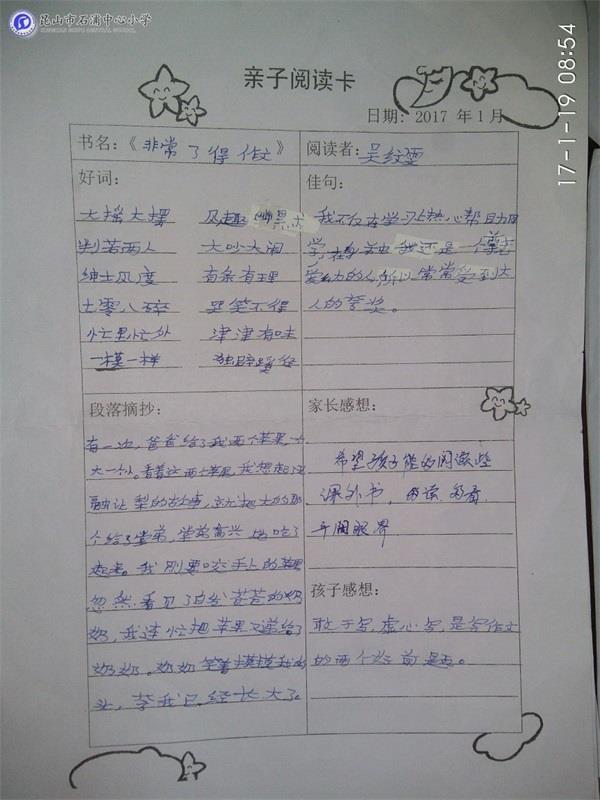 昆山市石浦中心小学
KUNSHAN SHIPU CENTRAL SCHOOL
17-1-19 08:54
亲子阅读卡
日期: 2017 年1月
书名:《非常了得作文》
阅读者: 吴纹雯
好词:
大摇大摆 风趣幽默
判若两人 大吵大闹
绅士风度 有条有理
七零八碎 哭笑不得
忙里忙外 津津有味
一模一样 独辟蹊径
佳句:
我不仅在学习上热心帮助同
学,在 我还是一个尊老
爱幼的人,所以常常受到大
人的夸奖。
段落摘抄:
有一次,爸爸给了我两个苹果,一
大一小。看着这两个苹果,我想起孔
融让梨的故事,就把大的那
个给了堂弟,堂弟高兴地吃了
起来。我刚要咬手上的苹果
忽然看见了白发苍苍的奶
奶,我连忙把苹果又递给了
奶奶。奶奶笑着摸摸我的
头,夸我已经长大了
家长感想:
希望孩子能多阅读些
课外书,多读,多看,
开阔眼界
孩子感想:
敢于写,虚心写,是写作文
的两个 前提。